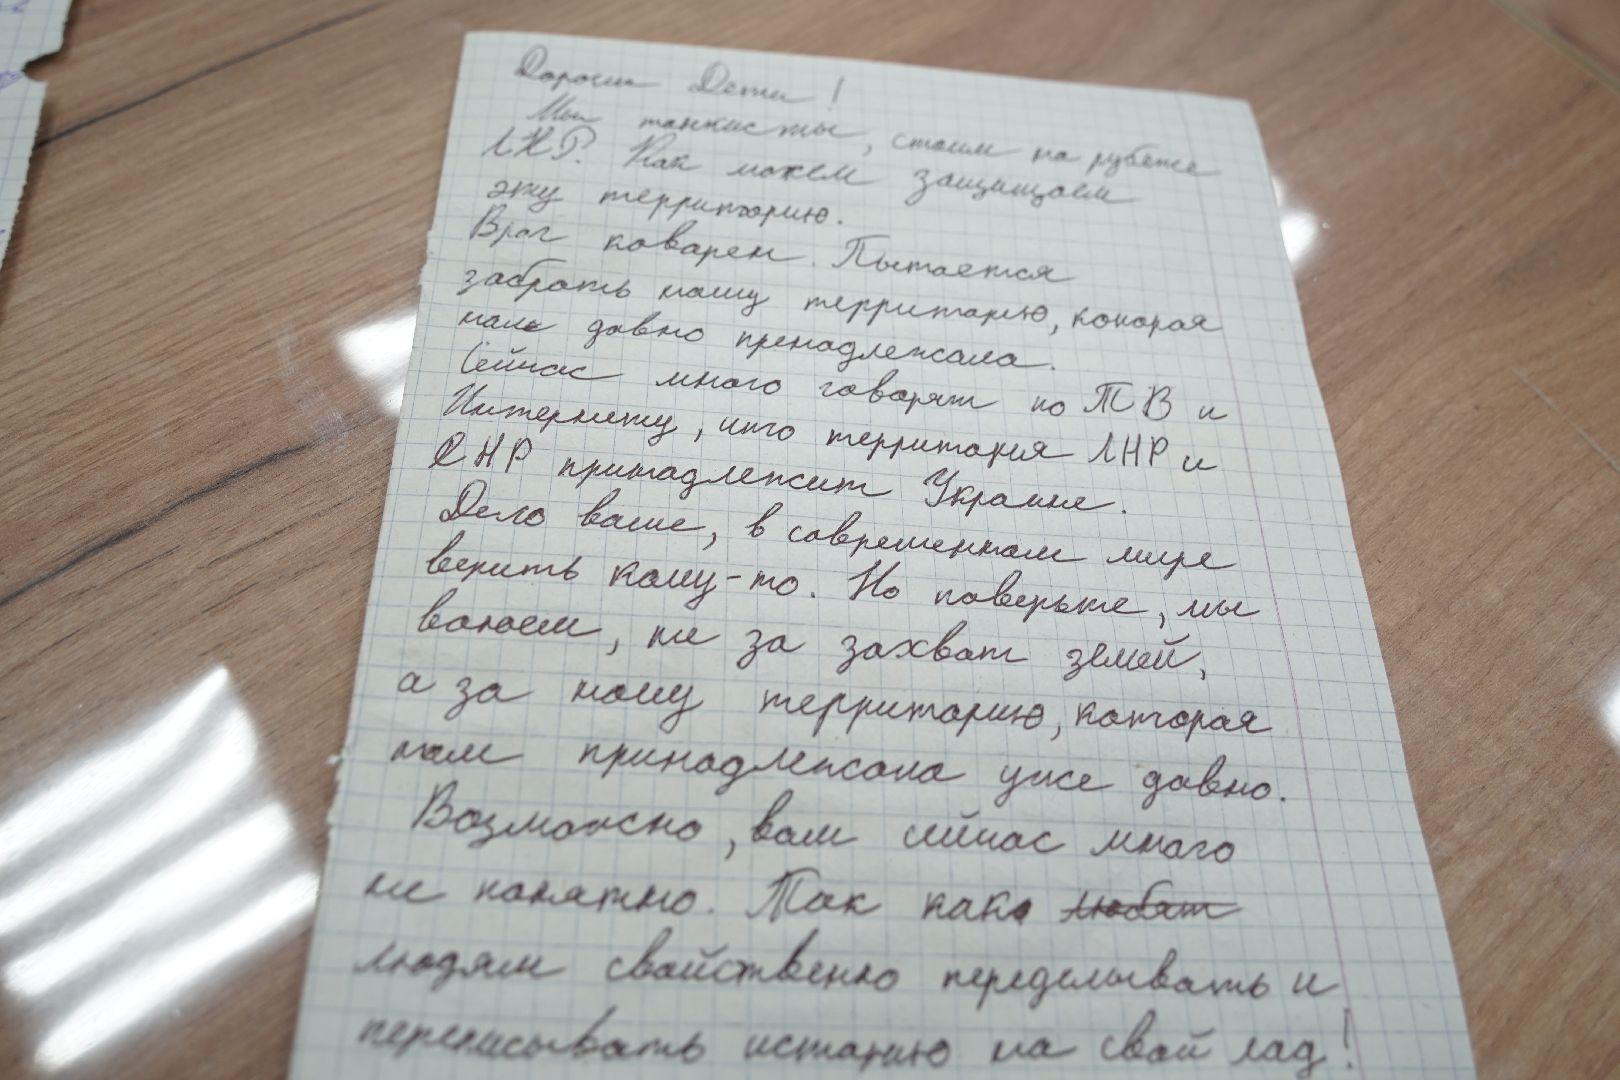 Дорогие Дети!
Мы танкисты, стоим на рубеже
ЛНР. Как можем защищаем
эту территорию.
Враг коварен. Пытается
забрать нашу территорию, которая
нам давно пренадлежала.
Сейчас много говорят по ТВ и
Интернету, что территория ЛНР и
ДНР принадлежит Украине.
Дело ваше, в современном мире
верить кому-то. Но поверьте, мы
воюем, не за захват земей,
а за нашу территорию, которая
нам принадлежала уже давно.
Возможно, вам сейчас много
не понятно. Так как любят
людям свойственно переделывать и
переписывать историю на свой лад!